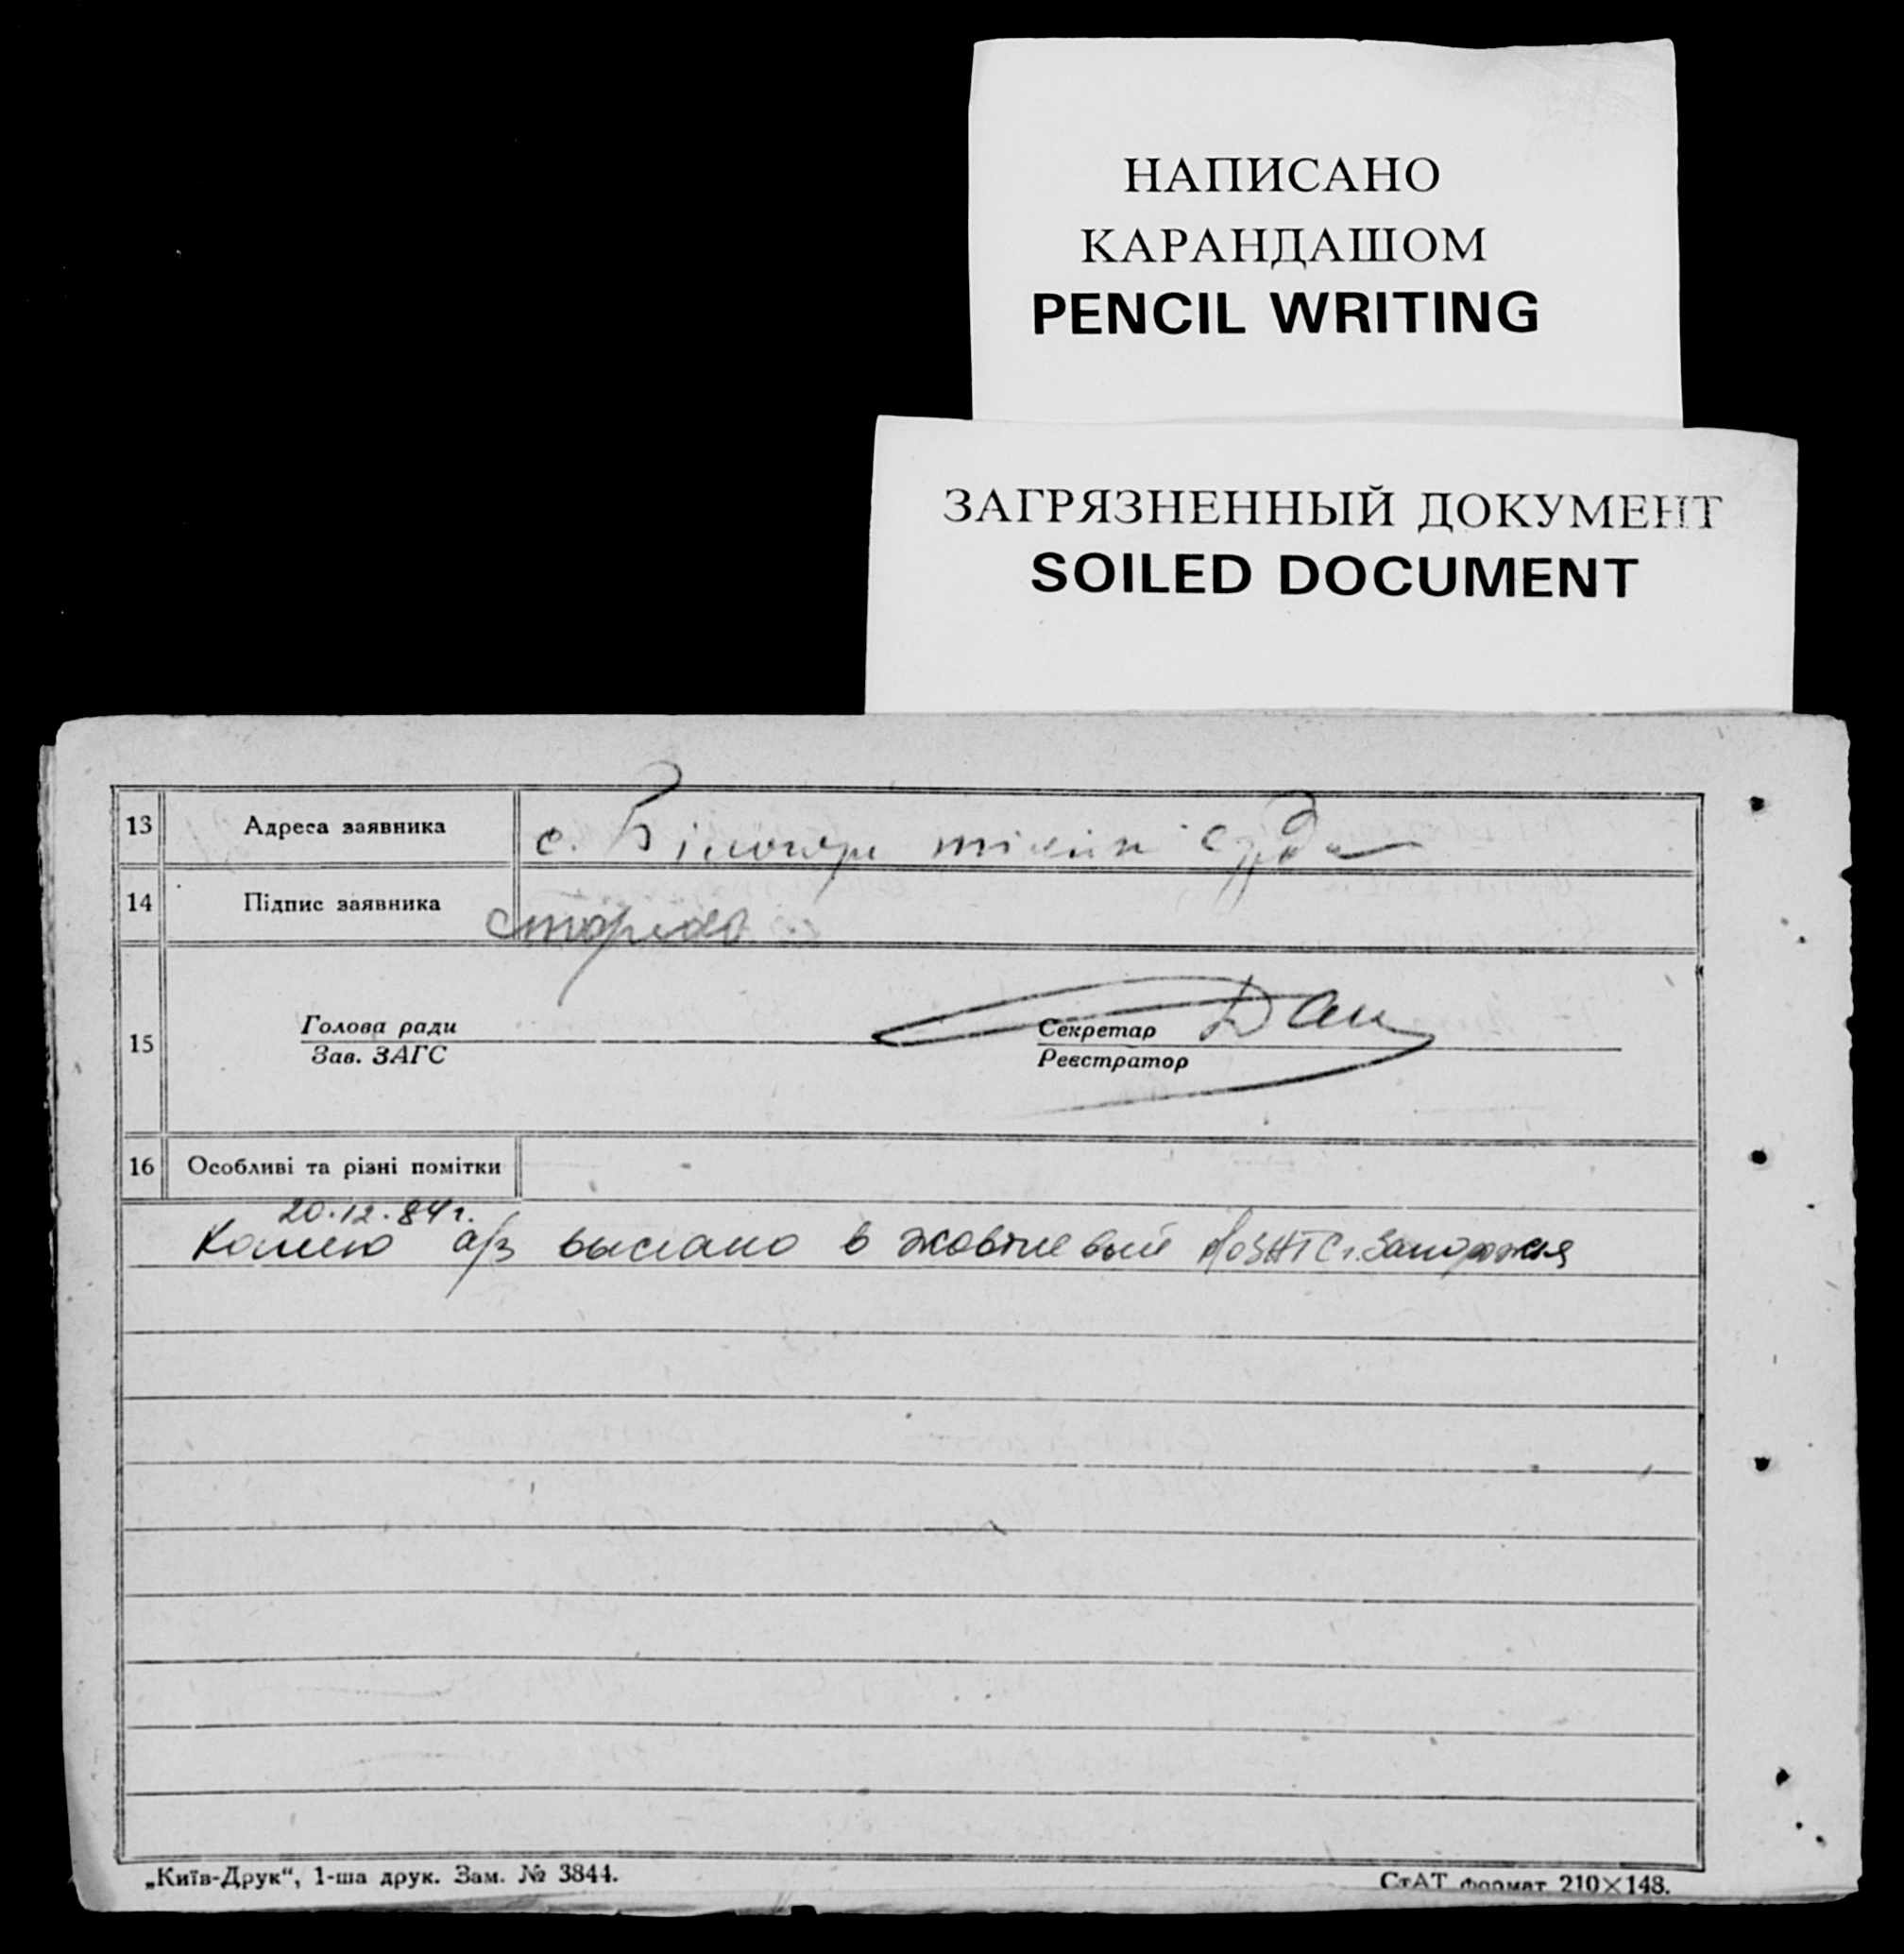 НАПИСАНО
КАРАНДАШОМ
PENCIL WRITING
ЗАГРЯЗНЕННЫЙ ДОКУМЕНТ
SOILED DOCUMENT
13 Адреса заявника с.
14 Підпис заявника
15 Голова ради Секретар Дан
Зав. ЗАГС Реєстратор
16 Особливі та різні помітки
20.12.84г.
Копию а/з выслано в жовтневый РОЗАГС г. Запорожья
„Київ-Друк“, 1-ша друк. Зам. № 3844.
СтАТ формат 210×148.